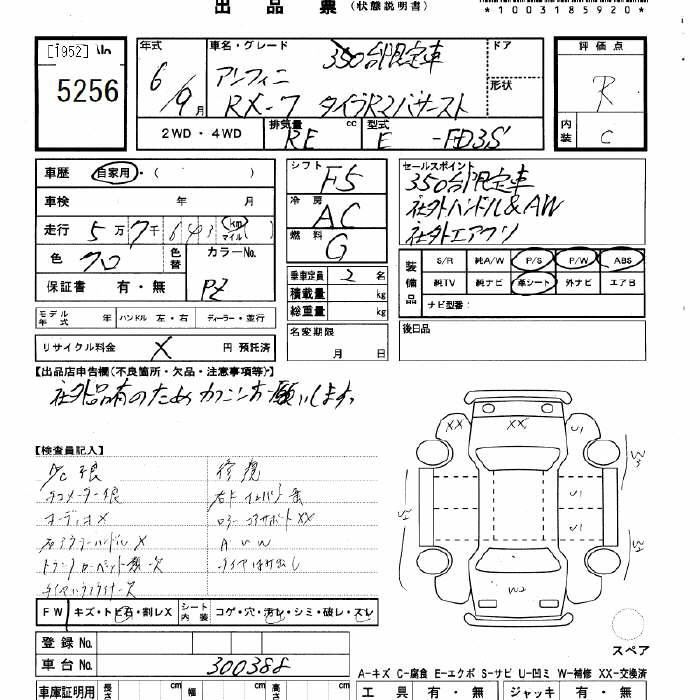 出品票（状態説明書）
*1003185920*
[1952]
5256
年式
車名・グレード
350台限定車
ドア
評価点
6/9月
アンフィニ
RX-7 タイプR2バサースト
形状
R
2WD・4WD
排気量 RE cc
型式 E -FD3S
内装 C
車歴 自家用・( )
シフト F5
セールスポイント
350台限定車
車検 年 月
冷房 AC
社外ハンドル&AW
走行 5万7千643 km マイル( )
社外エアクリ
燃料 G
色 クロ
色替
カラーNo. PZ
乗車定員 2名
装備品
S/R 純A/W P/S P/W ABS
保証書 有・無
積載量 kg
純TV 純ナビ 革シート 外ナビ エアB
総重量 kg
ナビ型番:
モデル年式 年 ハンドル 左・右 ディーラー・並行
名変期限
月 日
後日品
リサイクル料金 X 円 預託済
【出品店申告欄(不良箇所・欠品・注意事項等)】
社外品有のため カクニンお願いします
【検査員記入】
修復
オーディオX
AUW
FW キズ・トビ石・割レX シート内装 コゲ・穴・汚レ・シミ・破レ・スレ
XX XX U1
U1
U1
W2
登録No.
スペア
車台No. 300388
A-キズ C-腐食 E-エクボ S-サビ U-凹ミ W-補修 XX-交換済
車庫証明用 長さ cm 幅 cm 高さ cm
工具 有・無 ジャッキ 有・無